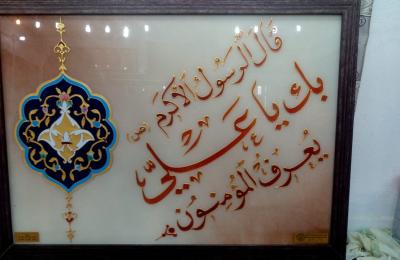 قَالَ الرَّسُولُ الْأَكْرَمُ (ص)
بِكَ يَا عَلِيُّ
يُعْرَفُ الْمُؤْمِنُونَ